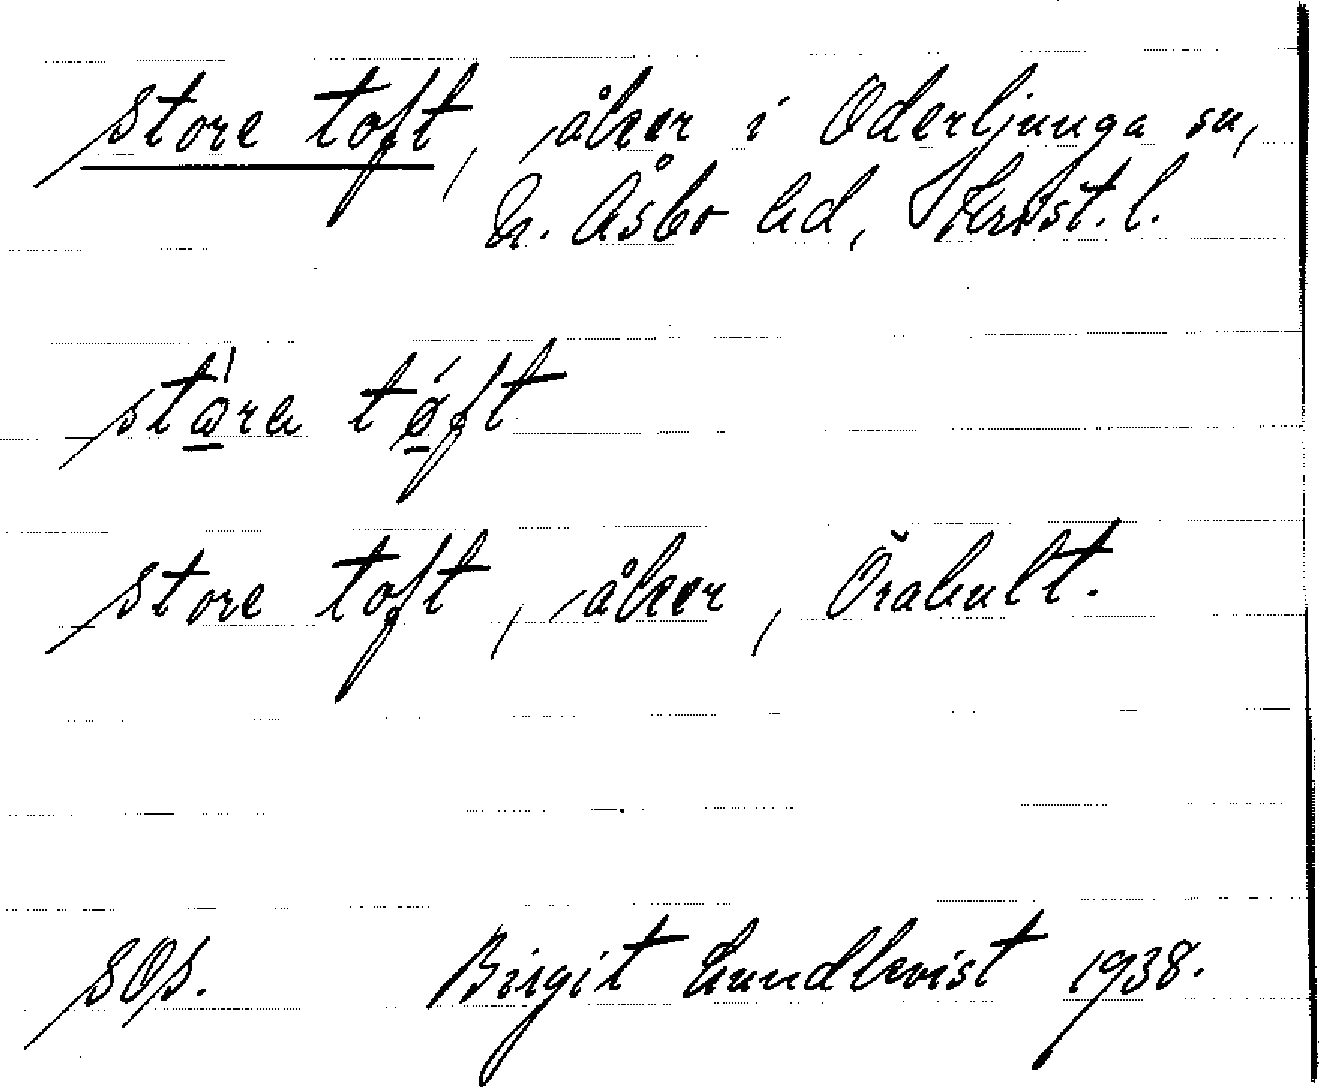 store toft, åker i Oderljunga sn,
N. Åsbo hd, Krist. l.
störe töft
store toft, åker, Örahult.
SOs. Birgit Lundkvist 1938.